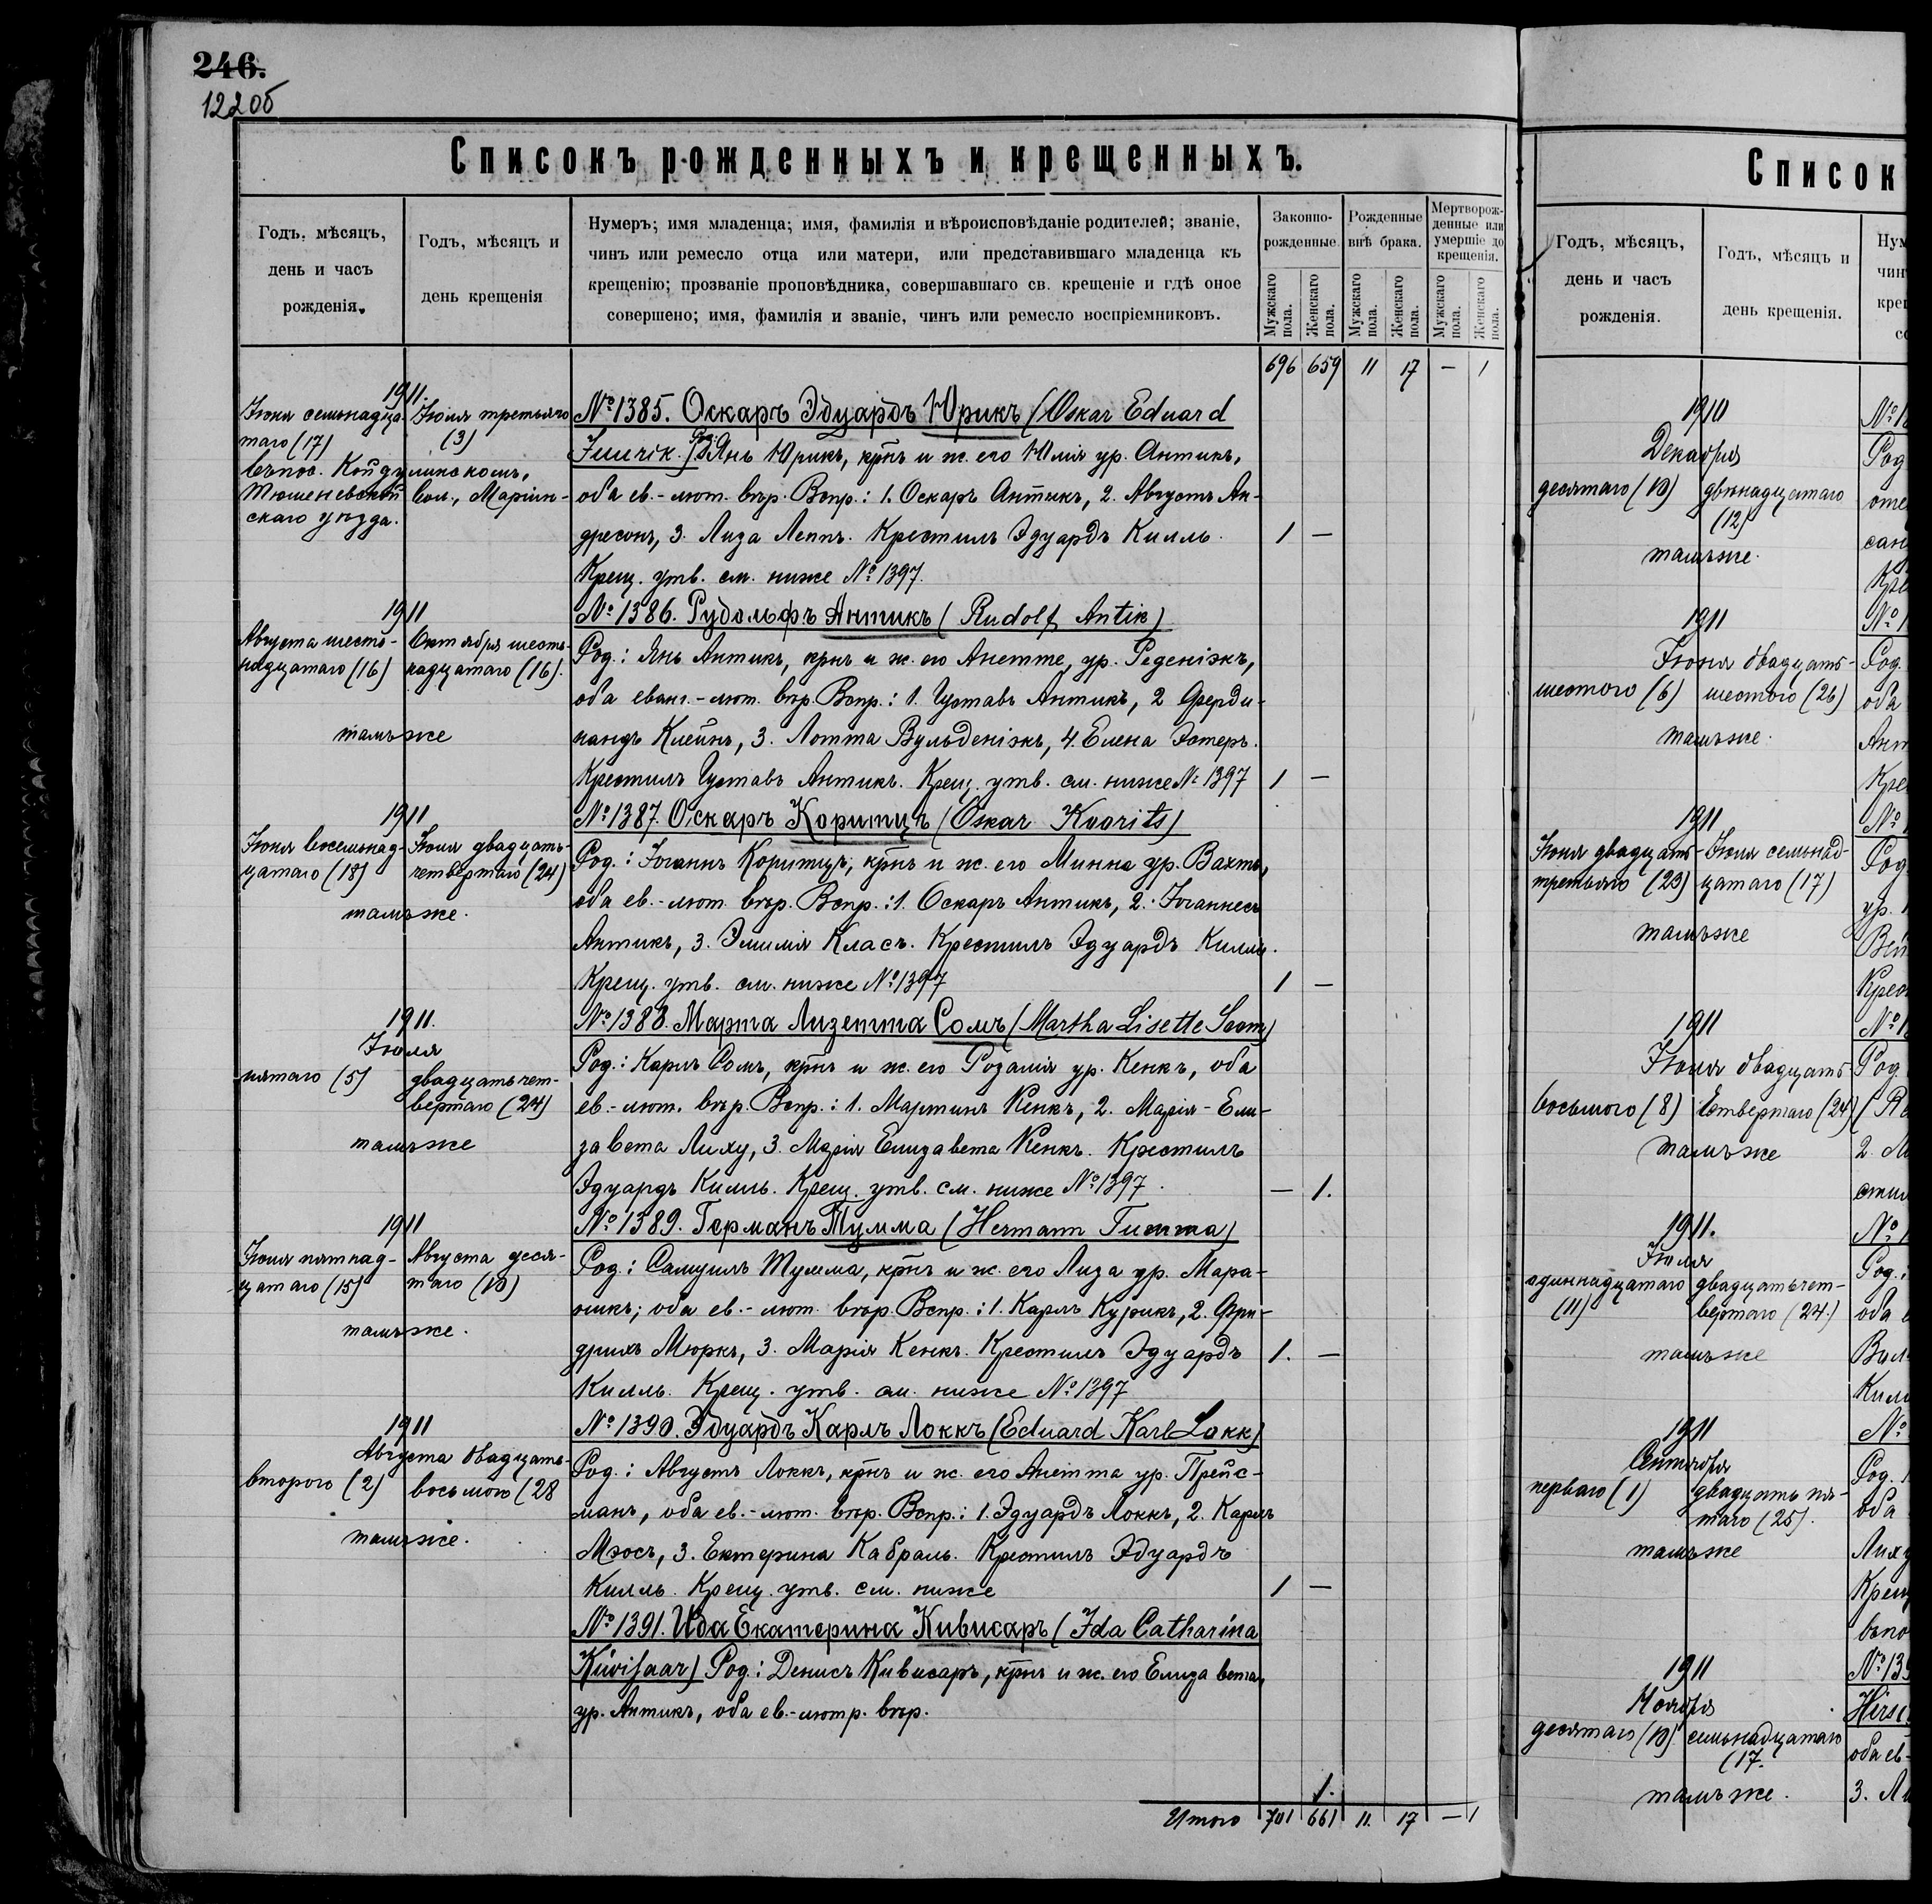 246.
122об
Списокъ рожденныхъ и крещенныхъ.
Годъ, мѣсяцъ,
день и часъ
рожденія.
Годъ, мѣсяцъ и
день крещенія
Нумеръ; имя младенца; имя, фамилія и вѣроисповѣданіе родителей; званіе,
чинъ или ремесло отца или матери, или представившаго младенца къ
крещенію; прозваніе проповѣдника, совершавшаго св. крещеніе и гдѣ оное
совершено; имя, фамилія и званіе, чинъ или ремесло воспріемниковъ.
Законно-
рожденные.
Рожденные
внѣ брака.
Мертворож-
денные или
умершіе до
крещенія.
Мужскаго пола.
Женскаго пола.
Мужскаго пола.
Женскаго пола.
Мужскаго пола.
Женскаго пола.
696 659 11 17 — 1
1911.
Іюня семьнадца-
таго (17)
Іюля третьяго
(3)
въ пос. Койдулинскомъ,
вол., Маріин-
скаго уѣзда.
№ 1385. Оскаръ Эдуардъ Юрикъ (Oskar Eduard
Juurik.) Род: Янъ Юрикъ, крнъ и ж. его Юлія ур. Антикъ,
оба ев.-лют. вѣр. Вспр.: 1. Оскаръ Антикъ, 2. Августъ Ан-
дресонъ, 3. Лиза Леппъ. Крестилъ Эдуардъ Килль. 1 —
Крещ. утв. см. ниже № 1397.
1911
Августа шесть-
надцатаго (16)
Октября шесть-
надцатаго (16).
тамъ же
№ 1386. Рудольфъ Антикъ (Rudolf Antik)
Род.: Янъ Антикъ, крнъ и ж. его Анетте, ур. Реденіэкъ,
оба еванг.-лют. вѣр. Вспр.: 1. Густавъ Антикъ, 2 Ферди-
нандъ Клейнъ, 3. Лотта Вульденіэкъ, 4. Елена Эстеръ.
Крестилъ Густавъ Антикъ. Крещ. утв. см. ниже № 1397 1 —
1911
Іюня восемьнад-
цатаго (18)
Іюля двадцать-
четвертаго (24)
тамъ же.
№ 1387. Оскаръ Коритцъ (Oskar Koorits)
Род.: Іоганнъ Коритцъ, крнъ и ж. его Минна ур. Вахтъ,
оба ев.-лют. вѣр. Вспр.: 1. Оскаръ Антикъ, 2. Іоганнесъ
Антикъ, 3. Эмилія Класъ. Крестилъ Эдуардъ Килль.
Крещ. утв. см. ниже № 1397 1 —
1911.
Іюля
пятаго (5)
двадцать чет-
вертаго (24)
тамъ же
№ 1388. Марта Лизетта Сомъ (Martha Lisette Soom)
Род.: Карлъ Сомъ, крнъ и ж. его Розалія ур. Кенкъ, оба
ев.-лют. вѣр. Вспр.: 1. Мартинъ Кенкъ, 2. Марія-Ели-
завета Лиху, 3. Марія Елизавета Кенкъ. Крестилъ
Эдуардъ Килль. Крещ. утв. см. ниже № 1397. — 1.
1911
Іюля пятнад-
цатаго (15)
Августа деся-
таго (10)
тамъ же.
№ 1389. Германъ Тумма (Hermann Tumma)
Род.: Самуилъ Тумма, крнъ и ж. его Лиза ур. Мара-
оба ев.-лют. вѣр. Вспр.: 1. Карлъ Курикъ, 2. Фри-
дрихъ Мюркъ, 3. Марія Кенкъ. Крестилъ Эдуардъ 1. —
Килль. Крещ. утв. см. ниже № 1397
1911
Августа двадцать-
второго (2)
восьмого (28
тамъ же.
№ 1390. Эдуардъ Карлъ Локкъ (Eduard Karl Lokk)
Род.: Августъ Локкъ, крнъ и ж. его Анетта ур. Прейс-
манъ, оба ев.-лют. вѣр. Вспр.: 1. Эдуардъ Локкъ, 2. Карлъ
Мэосъ, 3. Екатерина Кабраль. Крестилъ Эдуардъ
Килль. Крещ. утв. см. ниже 1 —
№ 1391. Ида Екатерина Кивисаръ (Ida Catharina
Kiwisaar) Род.: Денисъ Кивисаръ, крнъ и ж. его Елизавета,
ур. Антикъ, оба ев.-лютр. вѣр.
1.
Итого 701 661 11. 17 — 1
Список
Годъ, мѣсяцъ,
день и часъ
рожденія.
Годъ, мѣсяцъ и
день крещенія.
Нум
чин
кре
со
1910
Декабря
десятаго (10)
двѣнадцатаго
(12)
тамъ же.
1911
Іюня двадцать-
шестого (6)
шестого (26)
тамъ же.
1911
Іюня двадцать-
третьяго (23)
Іюля семьнад-
цатаго (17)
тамъ же
1911
Іюля двадцать-
восьмого (8)
четвертаго (24)
тамъ же
1911.
Іюля
одиннадцатаго
(11)
двадцать чет-
вертаго (24.)
тамъ же
1911
Сентября
перваго (1)
двадцать пя-
таго (25).
тамъ же
1911
Ноября
десятаго (10)
семьнадцатаго
(17.
тамъ же.